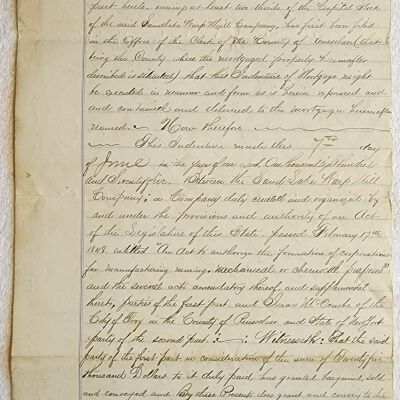 part hereto, owning at least two thirds of the Capital Stock
of the said Sandlake Warp Mill Company, has first been filed
in the Office of the Clerk of the County of Rensselaer (that
being the County where the mortgaged property hereinafter
described is situated) that this Indenture of Mortgage might
be executed in manner and form as is herein expressed and
and contained and delivered to the mortgagee hereinafter
named. Now therefore
This Indenture made this 7th day
of June in the year of our Lord One thousand eight hundred
and Seventy five. Between the Sand Lake Warp Mill
Company; a Company duly created and organized by
and under the provisions and authority of an Act
of the Legislature of this State passed February 17th
1848. entitled "An Act to authorize the formation of corporations
for manufacturing mining, mechanical or chemical purposes"
and the several acts amendatory thereof, and supplemental
hereto, parties of the first part and Isaac McConihe of the
City of Troy in the County of Rensselaer and State of New York
party of the second part. Witnesseth: That the said
party of the first part in consideration of the sum of Twenty five
thousand Dollars to it duly paid has granted, bargained, sold,
and conveyed and By these Presents does grant and convey to the